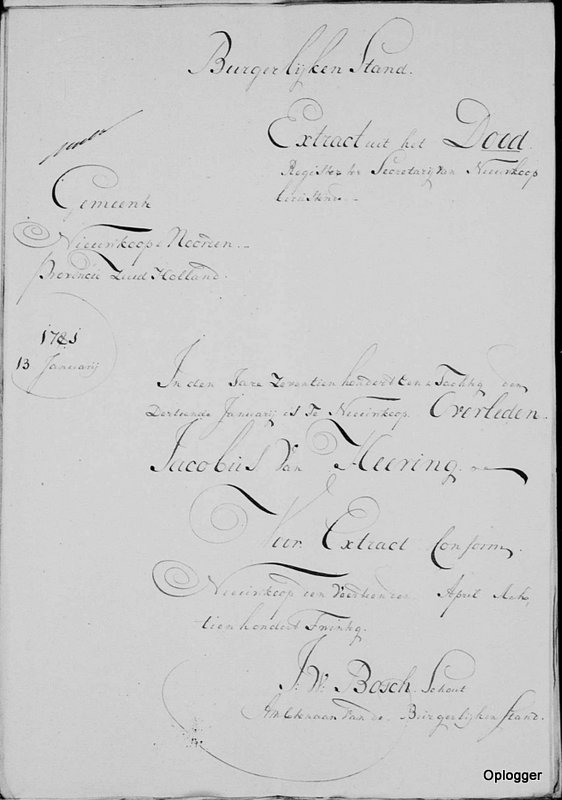 Burgerlijken Stand.
Extract uit het Doed
Register ter Secretarij van Nieuwkoop
berustende.
Gemeente
Nieuwkoop & Noorden.
Provincie Zuid Holland.
1781
13 Januarij
In den Jare Zeventien honderd Een & Tachtig den
Dertiende Januarij is Te Nieuwkoop Overleden.
Jacobus Van Heering.
Voor Extract Conform.
Nieuwkoop den Veertienden April Ach,
tienhondert Twintig.
J. V. Bosch. Schout
Amb[t]enaar van de Burgerlijken Stand.
Oplogger